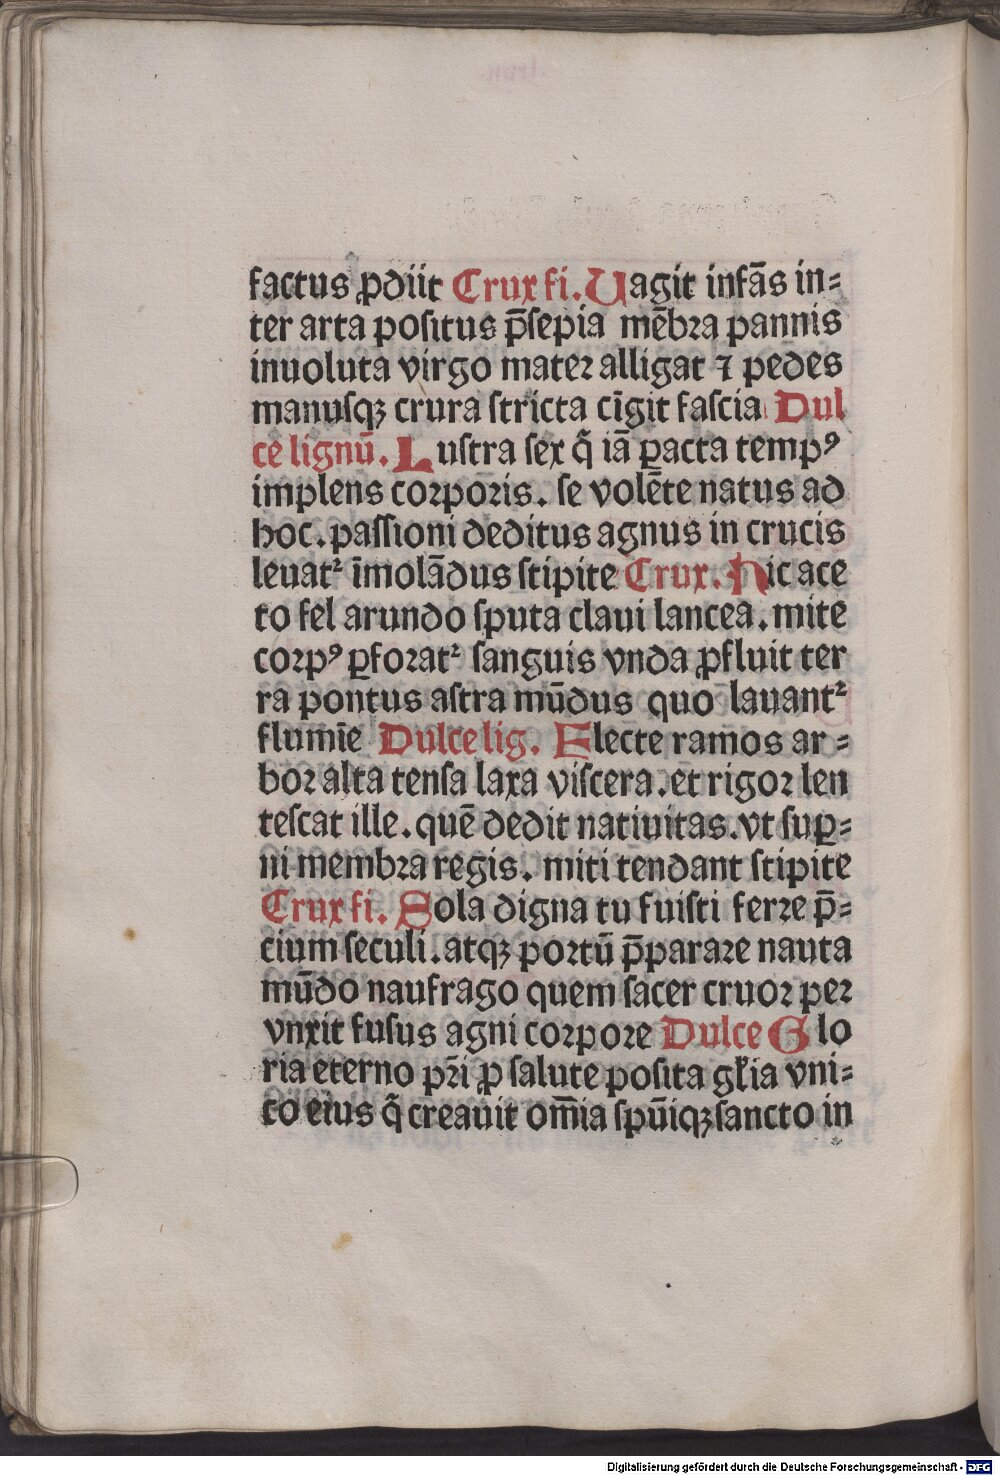 factus ꝓdiit Crux fi. Uagit infãs in⸗
ter arta positus p̃sepia mẽbra pannis
inuoluta virgo mater alligat ⁊ pedes
manusqꝫ crura stricta cĩgit fascia Dul
ce lignũ. Lustra sex q̃ iã ꝑacta tempꝰ
implens corporis. se volẽte natus ad
hoc. passioni deditus agnus in crucis
leuatᷣ ĩmolãdus stipite Crux. Hic ace
to fel arundo sputa claui lancea. mite
corpꝰ ꝑforatᷣ sanguis vnda ꝓfluit ter
ra pontus astra mũdus quo lauantᷣ
flumĩe Dulce lig. Electe ramos ar⸗
bor alta tensa laxa viscera. et rigor len
tescat ille. quẽ dedit natiuitas. vt suꝑ⸗
ni membra regis. miti tendant stipite
Crux fi. Sola digna tu fuisti ferre p̃⸗
cium seculi. atqꝫ portũ p̃parare nauta
mũdo naufrago quem sacer cruor per
vnxit fusus agni corpore Dulce Glo
ria eterno pr̃i ꝓ salute posita gl̃ia vni⸗
to eius q̃ creauit om̃ia spũiqꝫ sancto in
Digitalisierung gefördert durch die Deutsche Forschungsgemeinschaft - DFG